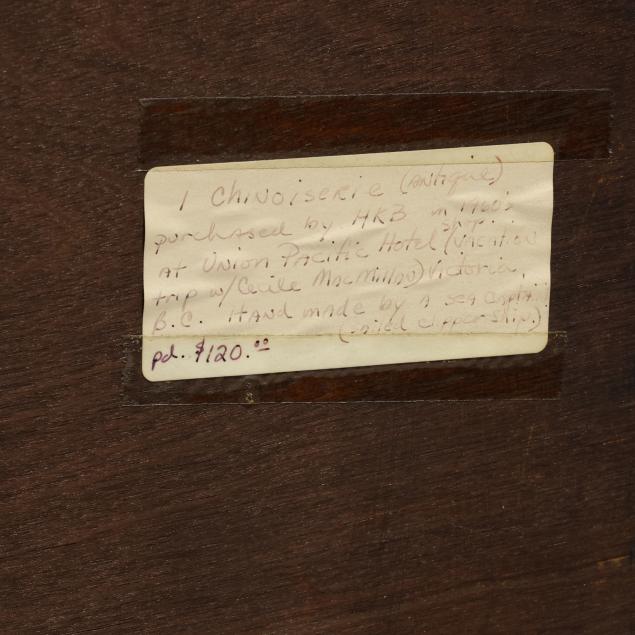 1 Chinoiserie (antique)
purchased by HKB in 1960's
shop.
at Union Pacific Hotel (vacation
trip w/Cecile MacMillan) Victoria,
B.C. Hand made by a sea captain
(sailed clipper ship.)
pd. $120.00